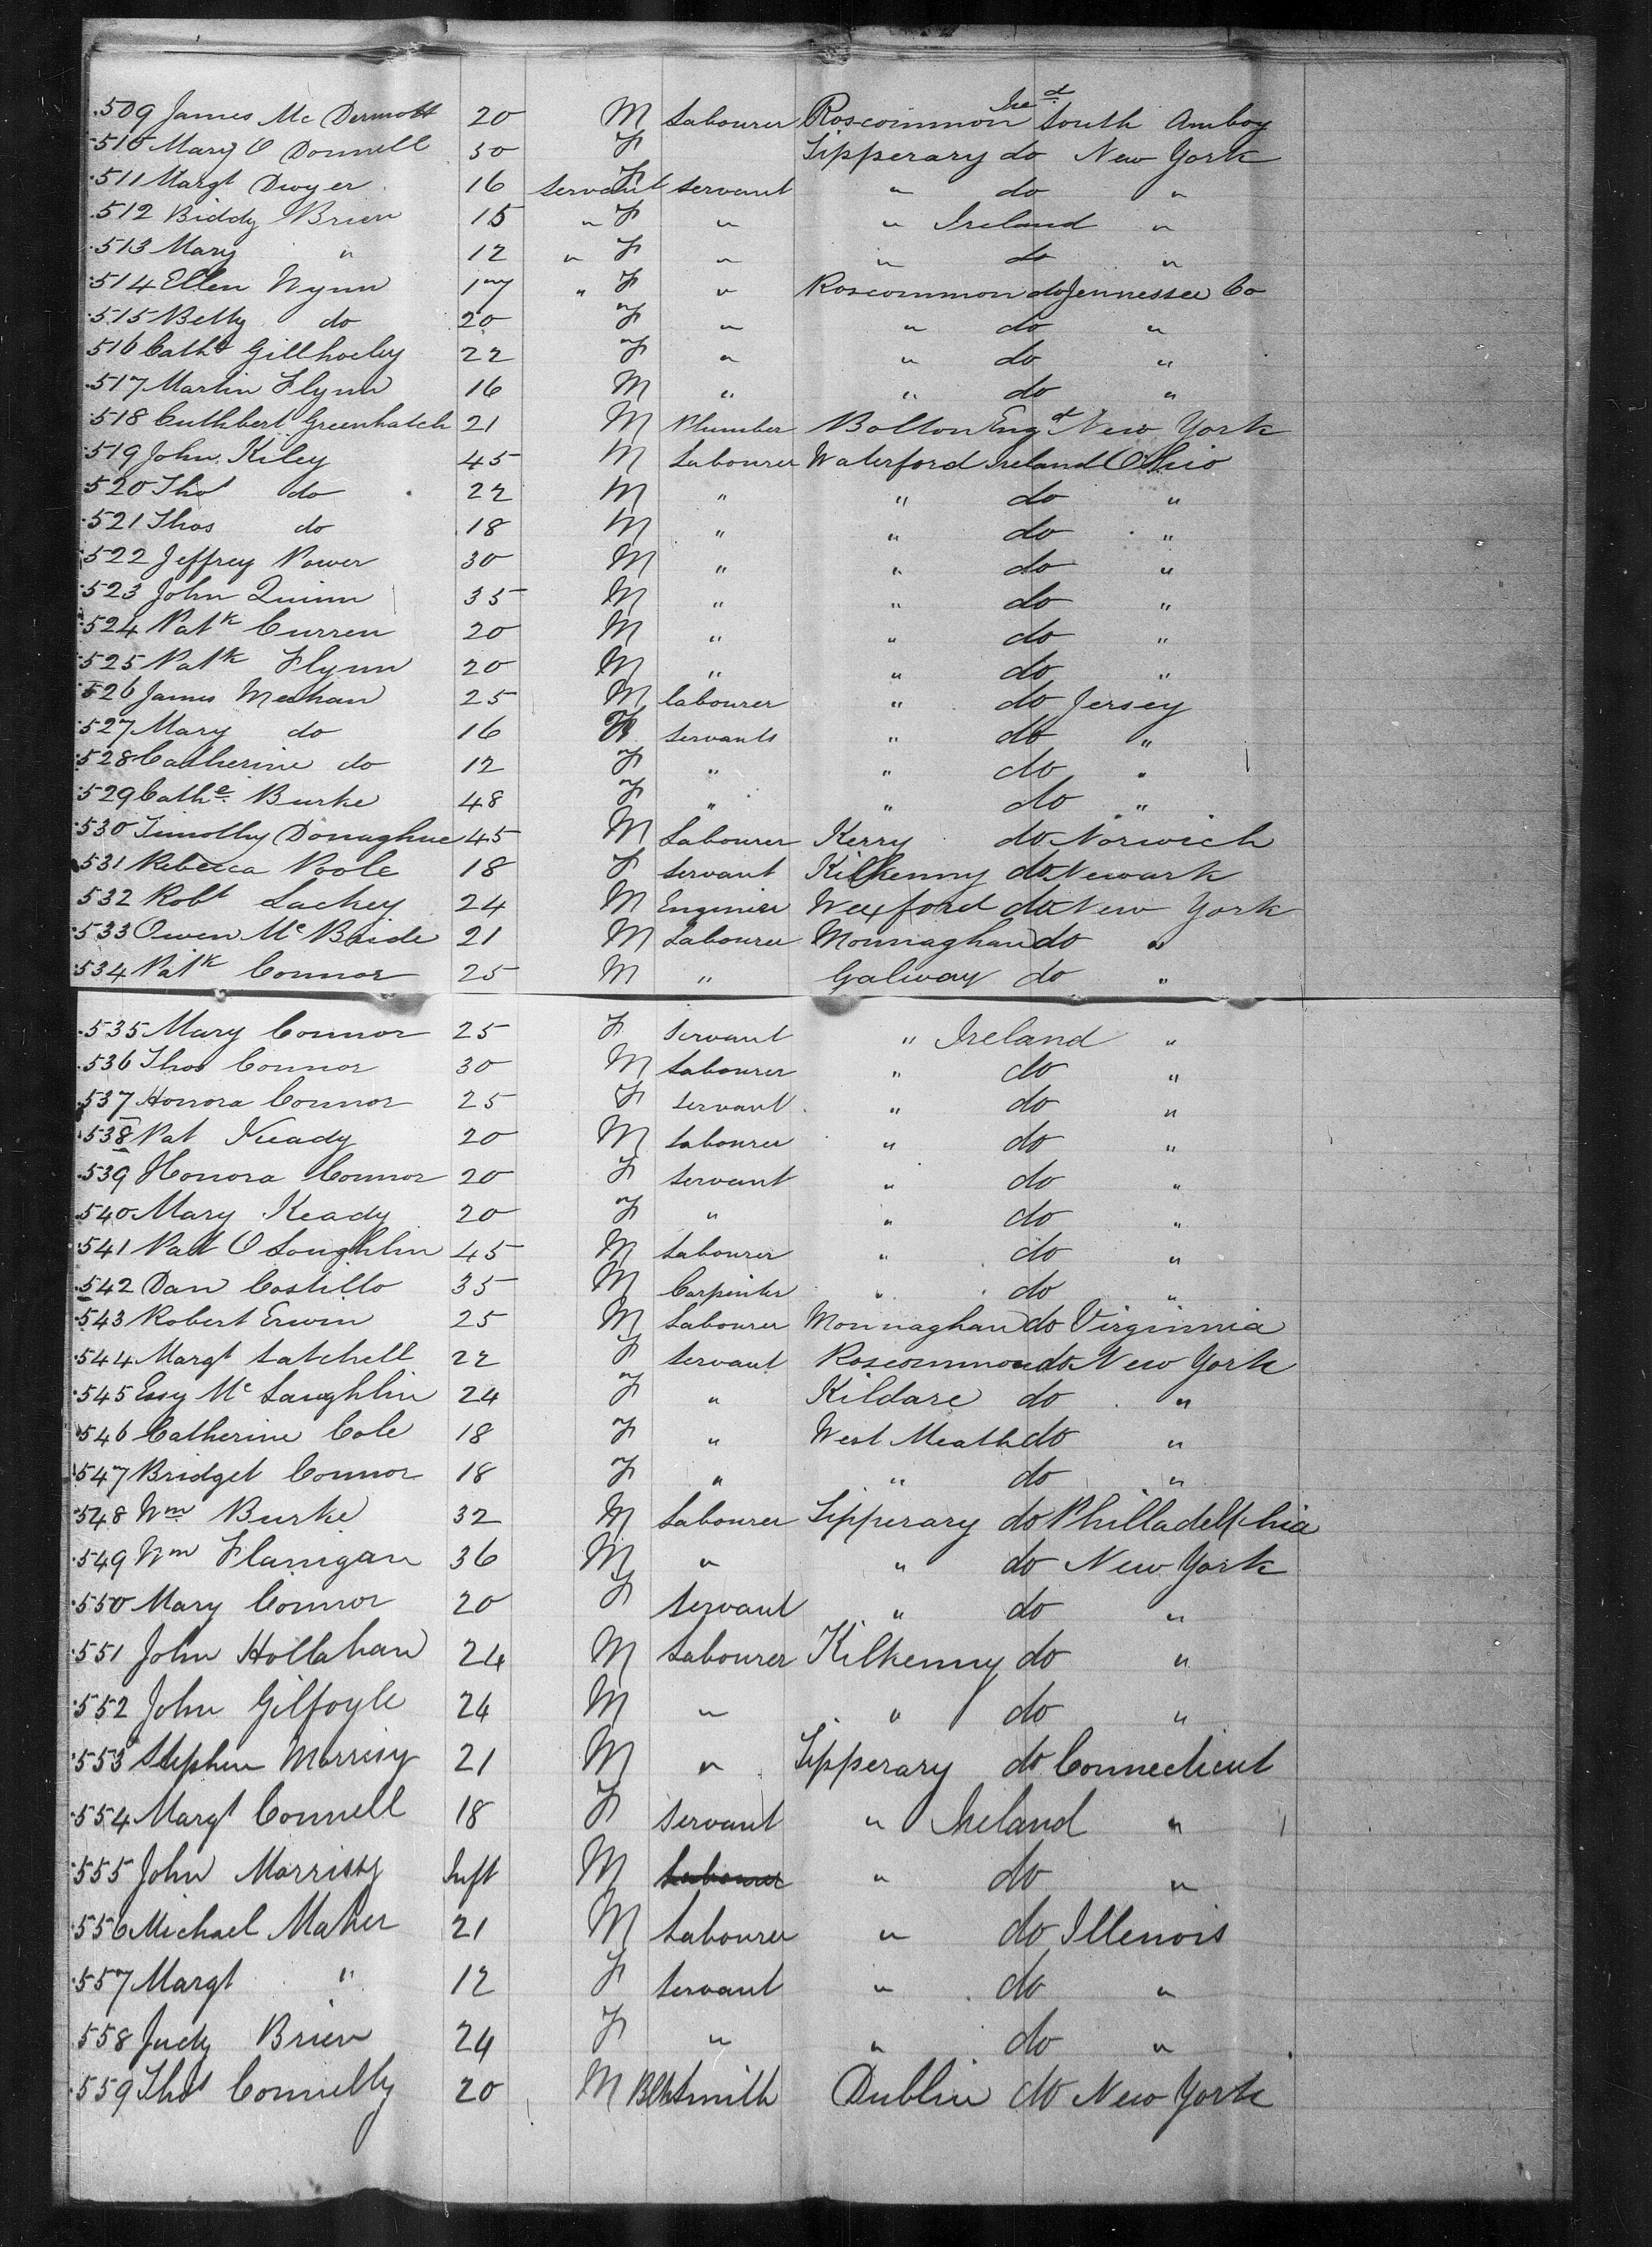 509 James McDermott 20 M Labourer Roscommon Ired South Amboy
510 Mary O Donnell 30 F Tipperary do New York
511 Margt Dwyer 16 servant F servant " do "
512 Biddy Brien 15 " F " " Ireland "
513 Mary " 12 " F " " do "
514 Ellen Wynn 17 " F " Roscommon do Jennessee Co
515 Betty do 20 F " " do "
516 Cathe Gillhooley 22 F " " do "
517 Martin Flynn 16 M " " do "
518 Cuthbert Greenhatch 21 M Plumber Bolton Engd New York
519 John Kiley 45 M Labourer Waterford Ireland Ohio
520 Thos do 22 M " " do "
521 Thos do 18 M " " do "
522 Jeffrey Power 30 M " " do "
523 John Quinn 35 M " " do "
524 Patk Curren 20 M " " do "
525 Patk Flynn 20 M " " do "
526 James Meehan 25 M labourer " do Jersey
527 Mary do 16 F servants " do "
528 Catherine do 12 F " " do "
529 Cathe Burke 48 F " " do "
530 Timothy Donaghue 45 M Labourer Kerry do Norwich
531 Rebecca Poole 18 F servant Kilkenny do Newark
532 Robt Lackey 24 M Engineer Wexford do New York
533 Owen McBride 21 M Labourer Monnaghan do "
534 Patk Connor 25 M " Galway do "
535 Mary Connor 25 F Servant " Ireland "
536 Thos Connor 30 M Labourer " do "
537 Honora Connor 25 F servant " do "
538 Pat Keady 20 M Labourer " do "
539 Honora Connor 20 F servant " do "
540 Mary Keady 20 F " " do "
541 Pat O Loughlin 45 M Labourer " do "
542 Dan Costillo 35 M Carpenter " do "
543 Robert Erwin 25 M Labourer Monnaghan do Virginnia
544 Margt Satchell 22 F servant Roscommon do New York
545 Essy McLaughlin 24 F " Kildare do "
546 Catherine Cole 18 F " West Meath do "
547 Bridget Connor 18 F " " do "
548 Wm Burke 32 M Labourer Tipperary do Philladelphia
549 Wm Flanigan 36 M " " do New York
550 Mary Connor 20 F Servant " do "
551 John Hollahan 24 M Labourer Kilkenny do "
552 John Gilfoyle 24 M " " do "
553 Stephen Morrisy 21 M " Tipperary do Connecticut
554 Margt Connell 18 F servant " Ireland "
555 John Morrissy Inft M Labourer " do "
556 Michael Maher 21 M Labourer " do Illenois
557 Margt " 12 F servant " do "
558 Judy Brien 24 F " " do "
559 Thos Connelly 20 M BlkSmith Dublin do New York